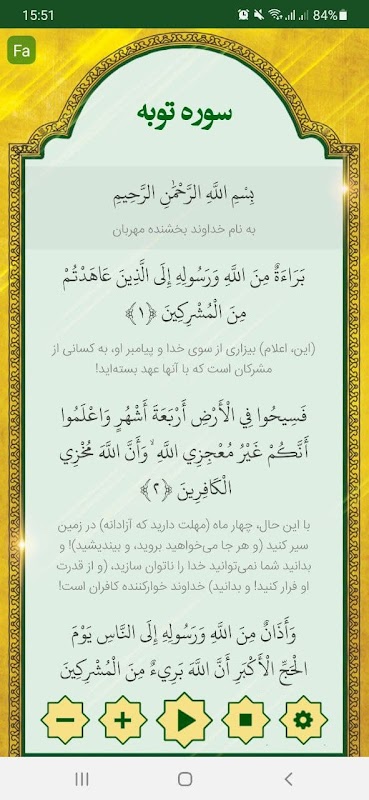 15:51
84%
Fa
سوره توبه
بِسْمِ اللَّهِ الرَّحْمَٰنِ الرَّحِيمِ
به نام خداوند بخشنده مهربان
بَرَاءَةٌ مِنَ اللَّهِ وَرَسُولِهِ إِلَى الَّذِينَ عَاهَدْتُمْ
مِنَ الْمُشْرِكِينَ ﴿١﴾
(این، اعلام) بیزاری از سوی خدا و پیامبر او، به کسانی از
مشرکان است که با آنها عهد بسته‌اید!
فَسِيحُوا فِي الْأَرْضِ أَرْبَعَةَ أَشْهُرٍ وَاعْلَمُوا
أَنَّكُمْ غَيْرُ مُعْجِزِي اللَّهِ ۙ وَأَنَّ اللَّهَ مُخْزِي
الْكَافِرِينَ ﴿٢﴾
با این حال، چهار ماه (مهلت دارید که آزادانه) در زمین
سیر کنید (و هر جا می‌خواهید بروید، و بیندیشید)! و
بدانید شما نمی‌توانید خدا را ناتوان سازید، (و از قدرت
او فرار کنید! و بدانید) خداوند خوارکننده کافران است!
وَأَذَانٌ مِنَ اللَّهِ وَرَسُولِهِ إِلَى النَّاسِ يَوْمَ
الْحَجِّ الْأَكْبَرِ أَنَّ اللَّهَ بَرِيءٌ مِنَ الْمُشْرِكِينَ